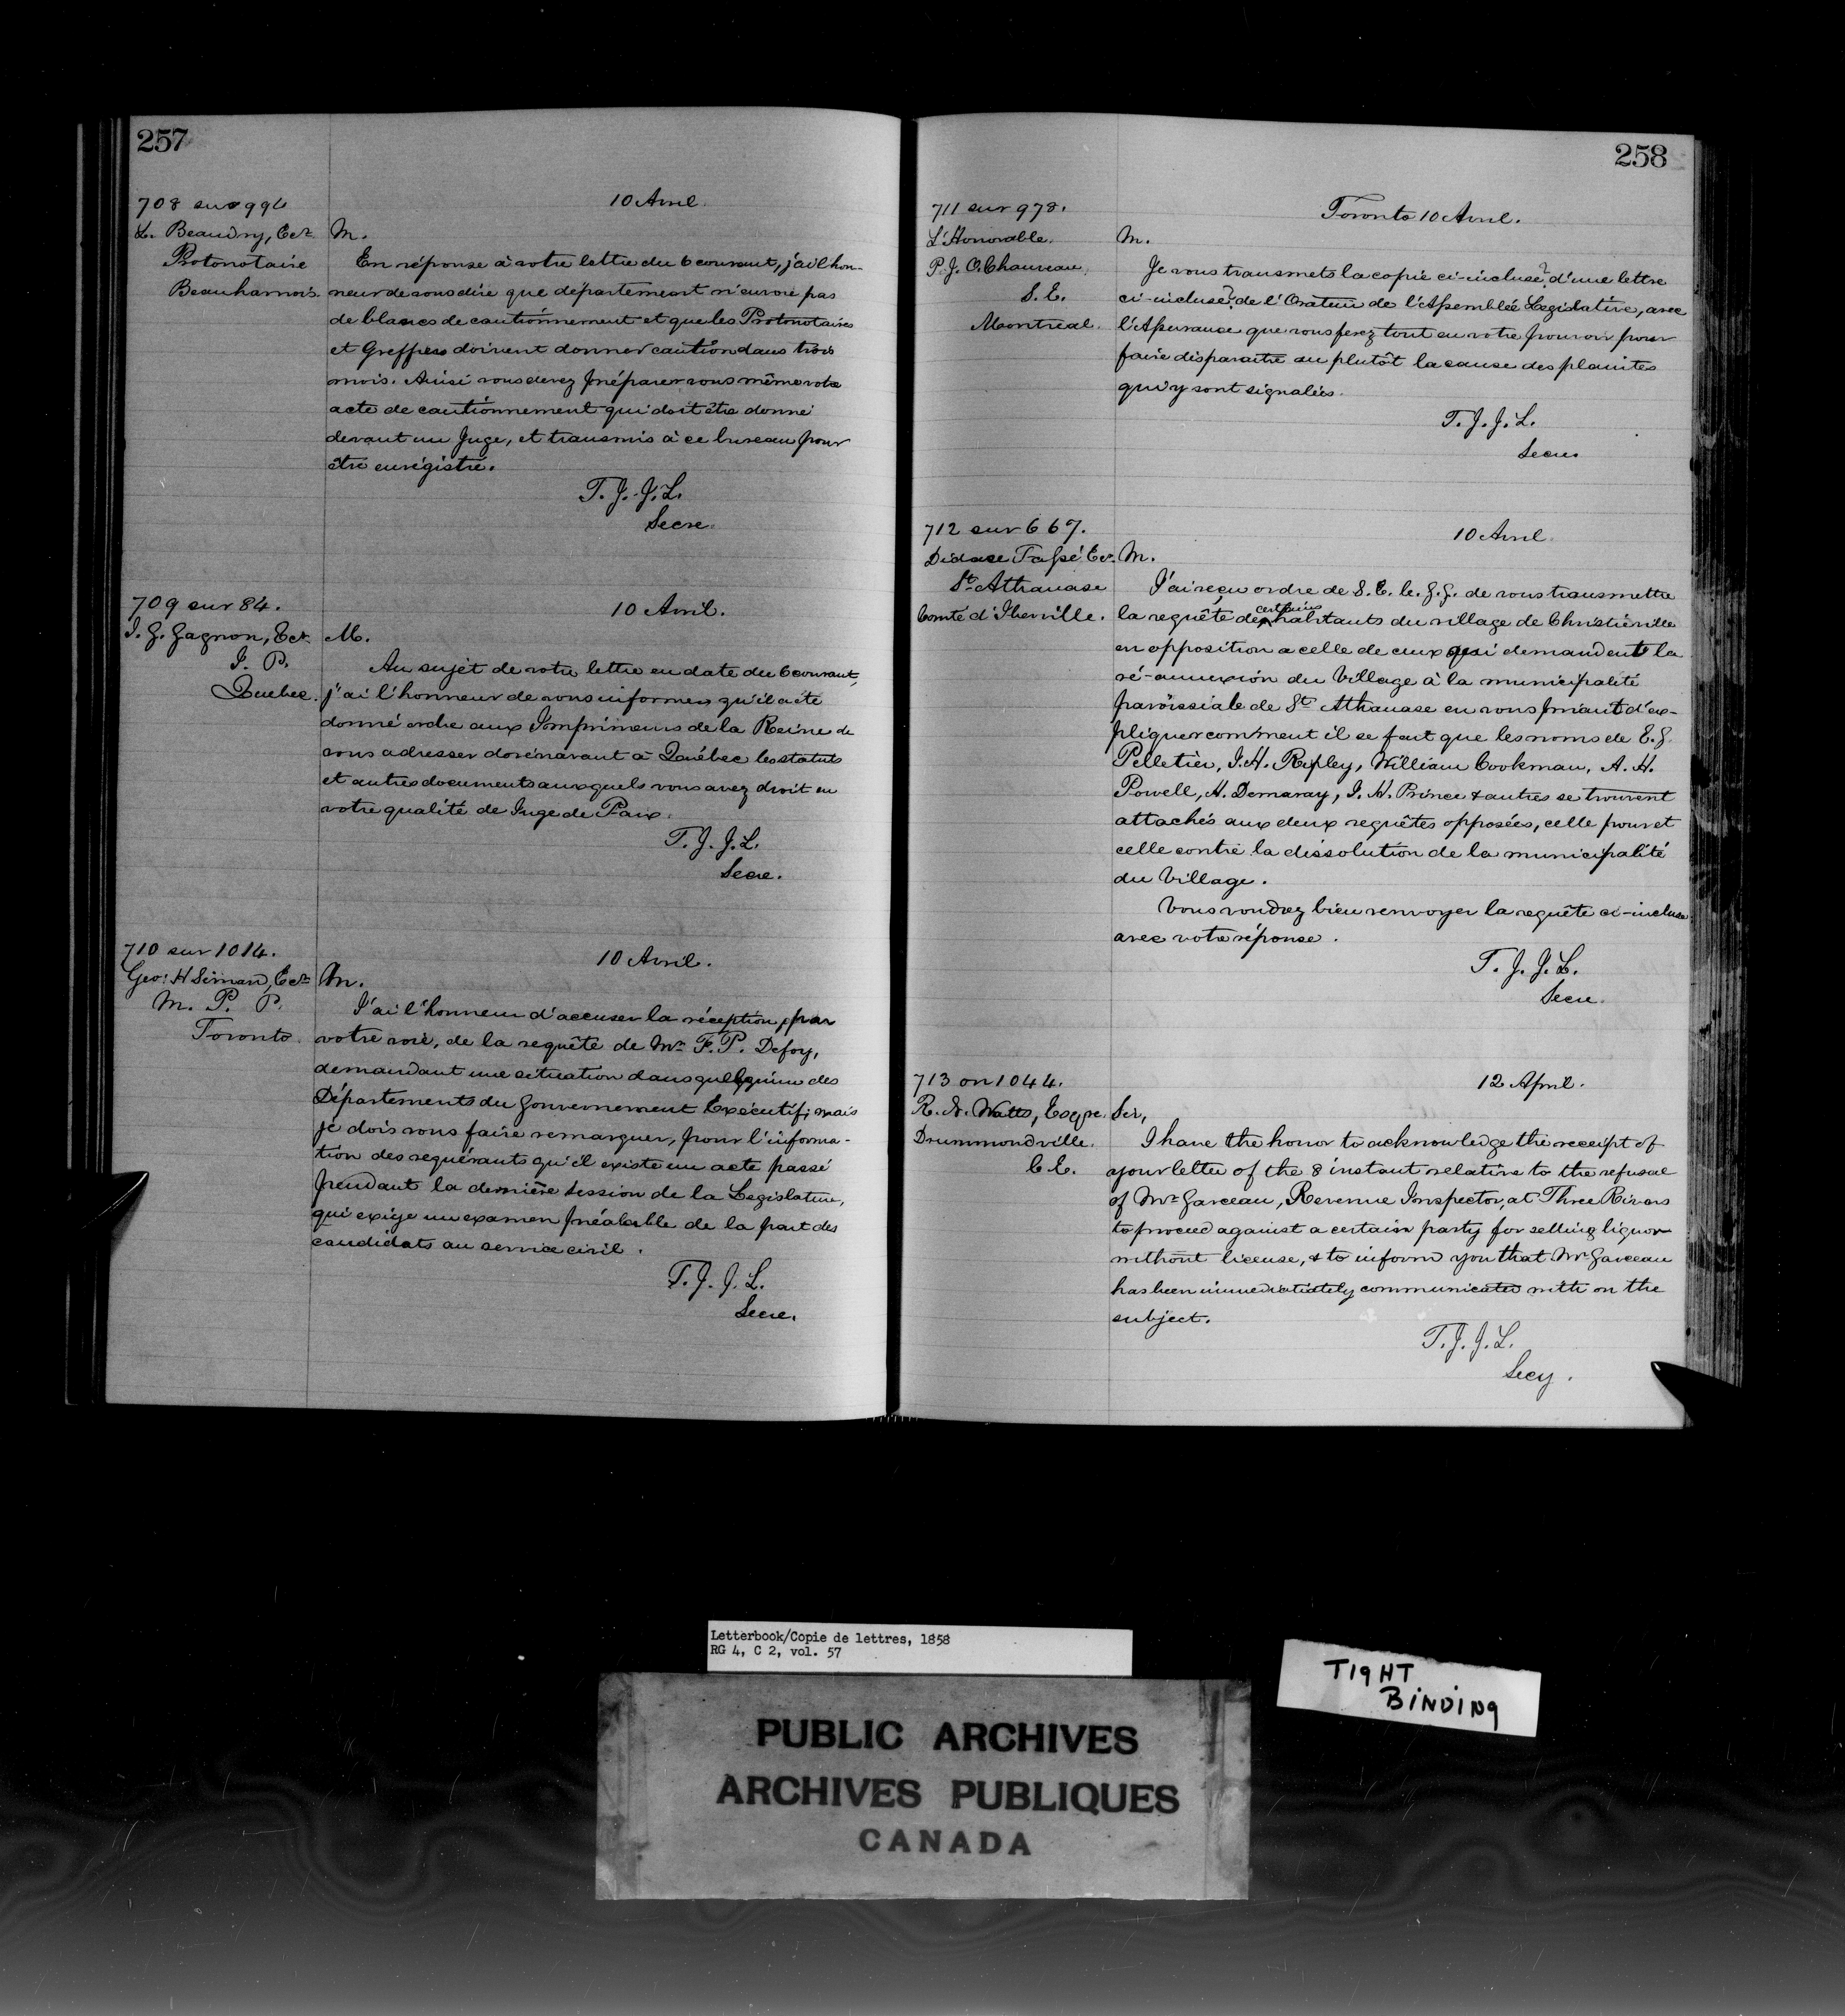 257
708 sur 994
10 Avril.
L. Beaudry, Ecr.
M.
Protonotaire
En réponse à votre lettre du 6 courant, j'ai l'hon-
Beauharnois.
neur de vous dire que département n'envoie pas
de blancs de cautionnement et que les Protonotaires
et Greffiers doivent donner caution dans trois
mois. Ainsi vous devez préparer vous même votre
acte de cautionnement qui doit être donné
devant un Juge, et transmis à ce bureau pour
être enrégistré.
T. J. J. L.
Secre.
709 sur 84.
10 Avril.
J. G. Gagnon, Ecr.
M.
J. P.
Au sujèt de votre lettre en date du 6 courant,
Quebec.
j'ai l'honneur de vous informer qu'il a été
donné ordre aux Imprimeurs de la Reine de
vous adresser dorénavant à Québec les statuts
et autres documents auxquels vous avez droit en
votre qualité de Juge de Paix.
T. J. J. L.
Secre.
710 sur 1014.
10 Avril.
Geo: H Simard, Ecr
M.
M. P. P.
J'ai l'honneur d'accuser la réception, par
Toronto.
votre voie, de la requête de Mr F. P. Defoy,
demandant une situation dans quelqu'un des
Départements du Gouvernement Exécutif; mais
je dois vous faire remarquer, pour l'informa-
tion des requérants qu'il existe un acte passé
pendant la dernière session de la Legislature,
qui exige un examen préalable de la part des
candidats au service civil.
T. J. J. L.
Secre.
258
711 sur 978.
Toronto 10 Avril.
L'Honorable.
M.
P. J. O. Chauveau,
Je vous transmets la copie ci-incluse? d'une lettre
S. E.
ci-incluse? de l'Orateur de l'Assemblée Legislative, avec
Montreal.
l'Assurance que vous ferez tout en votre pouvoir pour
faire disparaître au plutôt la cause des plaintes
qui y sont signalées.
T. J. J. L.
Secre.
712 sur 667.
10 Avril.
Didace Tassé Ecr.
M.
St Athanase
J'ai reçu ordre de S. E. le. G. G. de vous transmettre
Comté d'Iberville.
la requête de certains habitants du village de Christieville
en opposition a celle de ceux qui demandent la
ré-annexion du Village à la municipalité
paroissiale de St Athanase en vous priant d'ex-
pliquer comment il se fait que les noms de E. G.
Pelletier, J. H. Ripley, William Cookman, A. H.
Powell, H. Demaray, J. H. Prince & autres se trouvent
attachés aux deux requêtes opposées, celle pour et
celle contre la dissolution de la municipalité
du Village.
Vous voudrez bien renvoyer la requête ci-incluse
avec votre réponse.
T. J. J. L.
Secre.
713 on 1044.
12 April.
R. N. Watts, Esqre.
Sir,
Drummondville.
I have the honor to acknowledge the receipt of
C E.
your letter of the 8 instant relative to the refusal
of Mr Garceau, Revenue Inspector, at Three Rivers
to proceed against a certain party for selling liquor
without license, & to inform you that Mr Garceau
has been immediatiately communicated with on the
subject.
T. J. J. L.
Secy.
Letterbook/Copie de lettres, 1858
RG 4, C 2, vol. 57
TIGHT
BINDING
PUBLIC ARCHIVES
ARCHIVES PUBLIQUES
CANADA